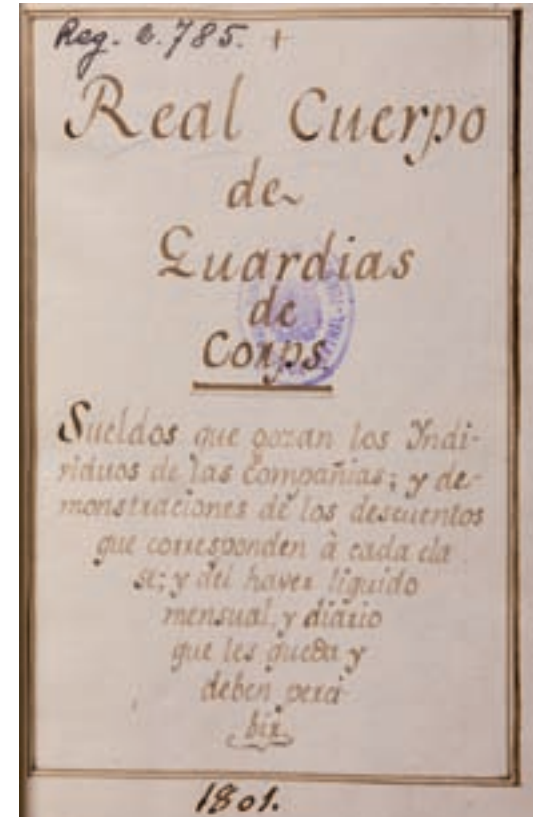 Reg. C. 785. +
Real Cuerpo
de
Guardias
de
Corps
Sueldos que gozan los Yndi-
viduos de las Compañias; y de-
monstraciones de los descuentos
que corresponden à cada cla
se; y del haver liquido
mensual, y diario
que les queda y
deben perci
bir.
1801.